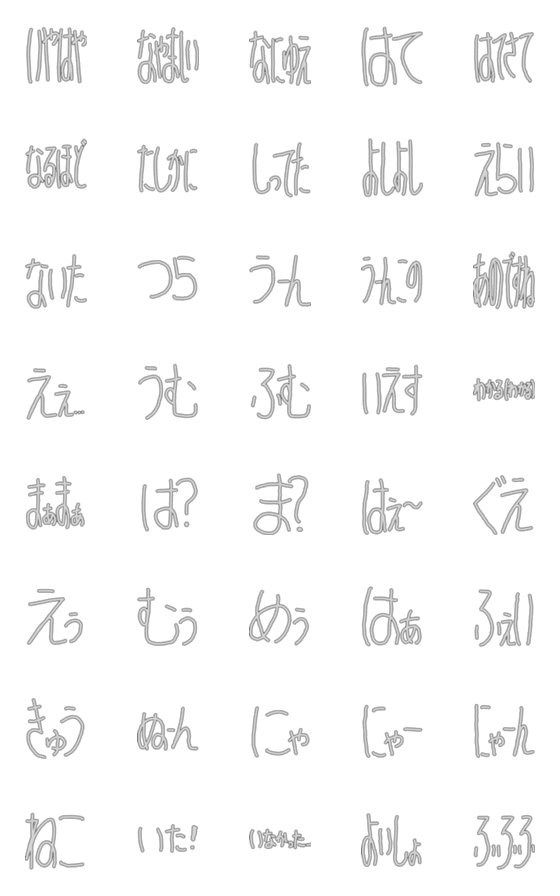 いやはや なやましい なにゆえ はて はてさて
なるほど たしかに しってた よしよし えらい
ないた つら うーん うーんこの あのですね
えぇ... うむ ふむ いえす わかる(わかる)
まぁまぁ は? ま? はぇ〜 ぐえ
えぅ むぅ めぅ はぁ ふぇい
きゅう ぬーん にゃ にゃー にゃーん
ねこ いた! いなかった... よいしょ ふふふ